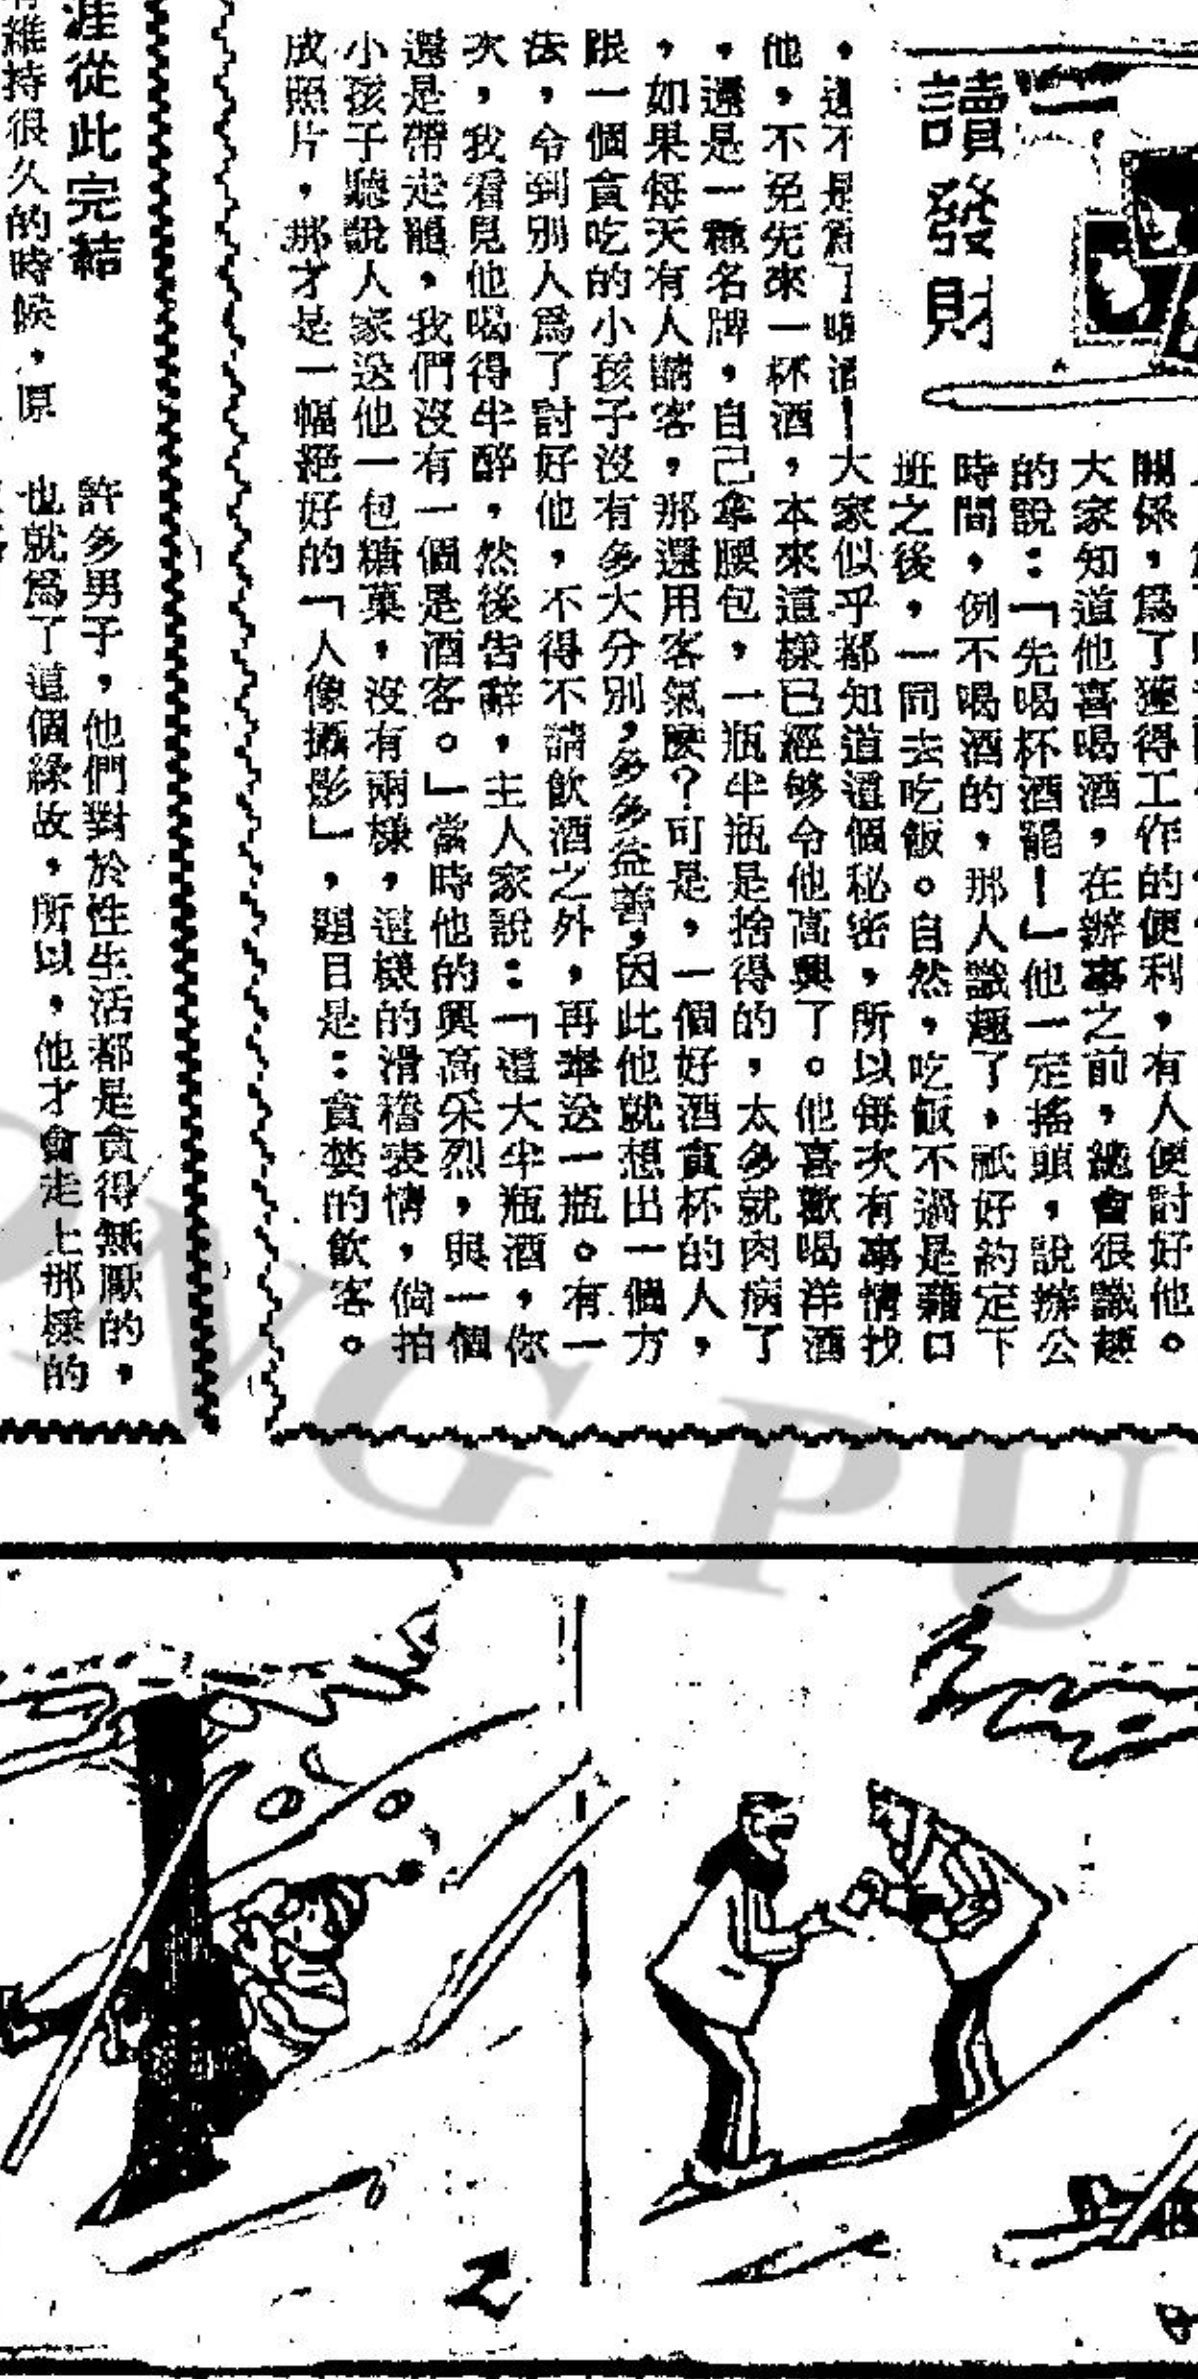 讀
發
財
關係，爲了獲得工作的便利，有人便討好他。
大家知道他喜喝酒，在辦事之前，總會很識趣
的說：「先喝杯酒罷！」他一定搖頭，說辦公
時間，例不喝酒的，那人識趣了，祇好約定下
班之後，一同去吃飯。自然，吃飯不過是藉口
，還不是爲了喝酒！大家似乎都知道這個秘密，所以每次有事情找
他，不免先來一杯酒，本來這樣已經够令他高興了。他喜歡喝洋酒
，還是一種名牌，自己拿腰包，一瓶半瓶是捨得的，太多就肉病了
，如果每天有人請客，那還用客氣麽？可是，一個好酒貪杯的人，
跟一個貪吃的小孩子沒有多大分別，多多益善，因此他就想出一個方
法，令到別人爲了討好他，不得不請飲酒之外，再奉送一瓶。有一
次，我看見他喝得半醉，然後告辭，主人家說：「這大半瓶酒，你
還是帶走罷，我們沒有一個是酒客。」當時他的興高采烈，與一個
小孩子聽說人家送他一包糖菓，沒有兩樣，這樣的滑稽表情，倘拍
成照片，那才是一幅絕好的「人像攝影」，題目是：貪婪的飲客。
涯從此完結
維持很久的時候，原
許多男子，他們對於性生活都是貪得無厭的，
也就爲了這個緣故，所以，他才會走上那樣的
2
PNG PU